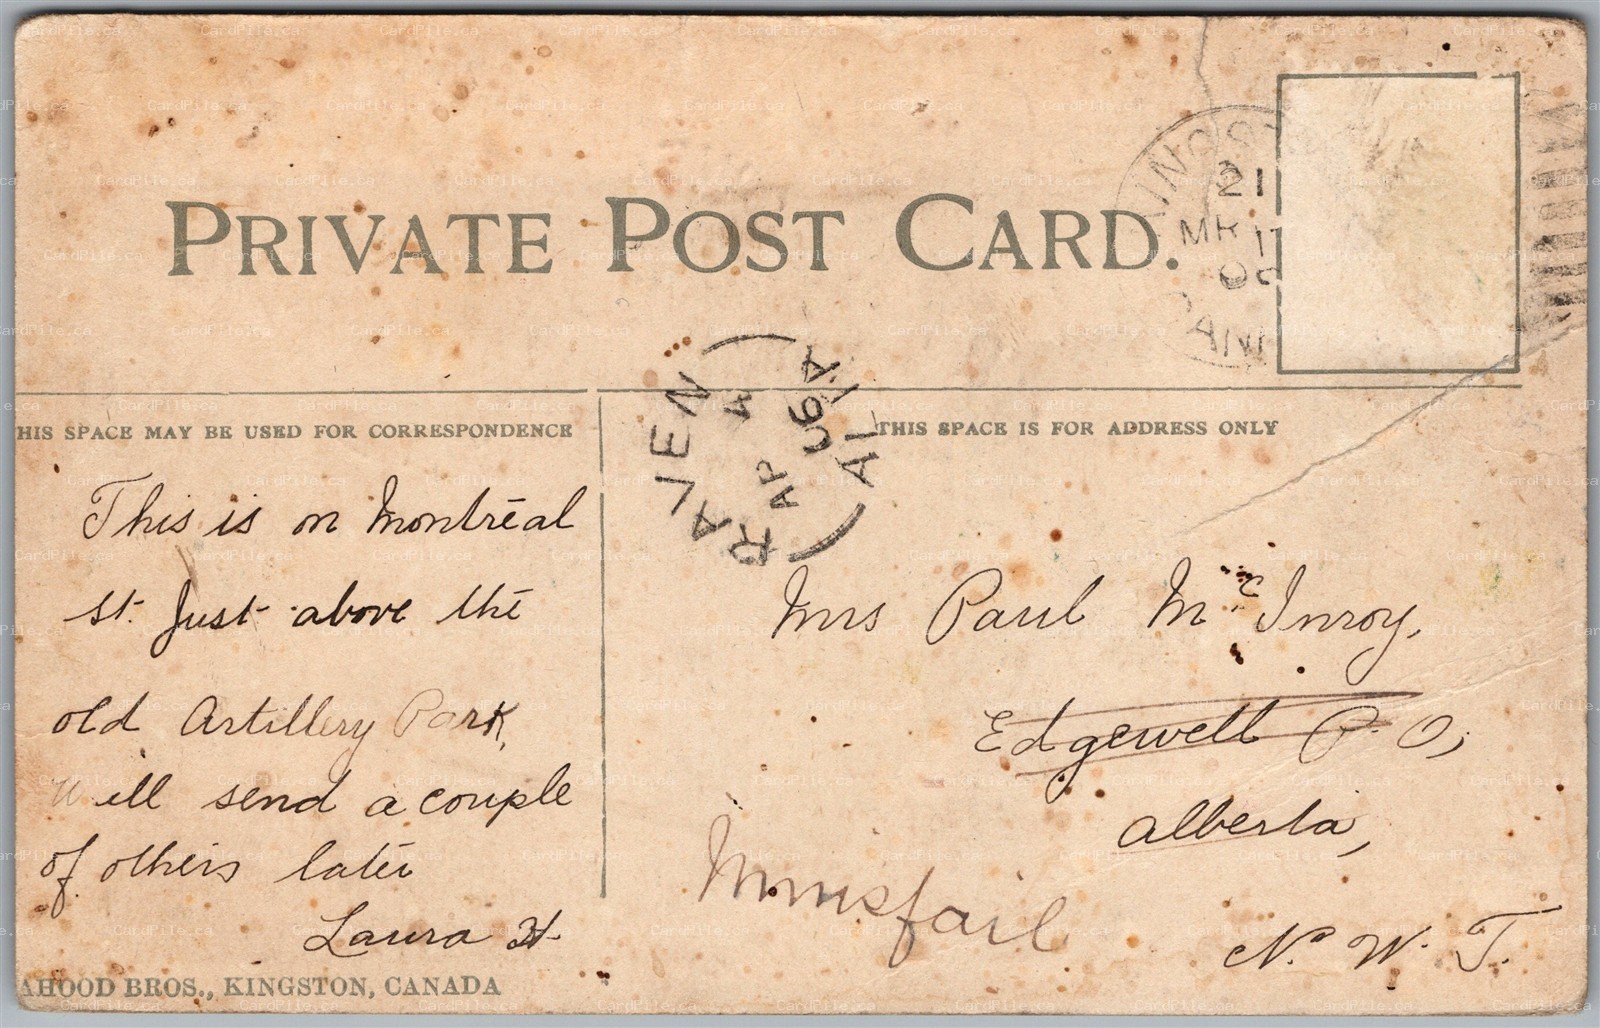 PRIVATE POST CARD.
21
MR 17
RAVEN
ALTA
AP 4
06
HIS SPACE MAY BE USED FOR CORRESPONDENCE
THIS SPACE IS FOR ADDRESS ONLY
This is on Montreal
St. Just above the
old Artillery Park,
Will send a couple
of others later
Laura H
AHOOD BROS., KINGSTON, CANADA
Mrs Paul McInroy,
Edgewell P.O,
Alberta,
Innisfail
N. W. T.
CardPile.ca